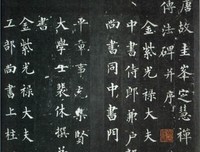 唐故圭峯定慧禪
傳法碑并序
金紫光祿大夫
中書侍郎兼戶部
尚書同中書門
平章事充集賢
大學士裴休撰并
書
金紫光祿大夫
工部尚書上柱